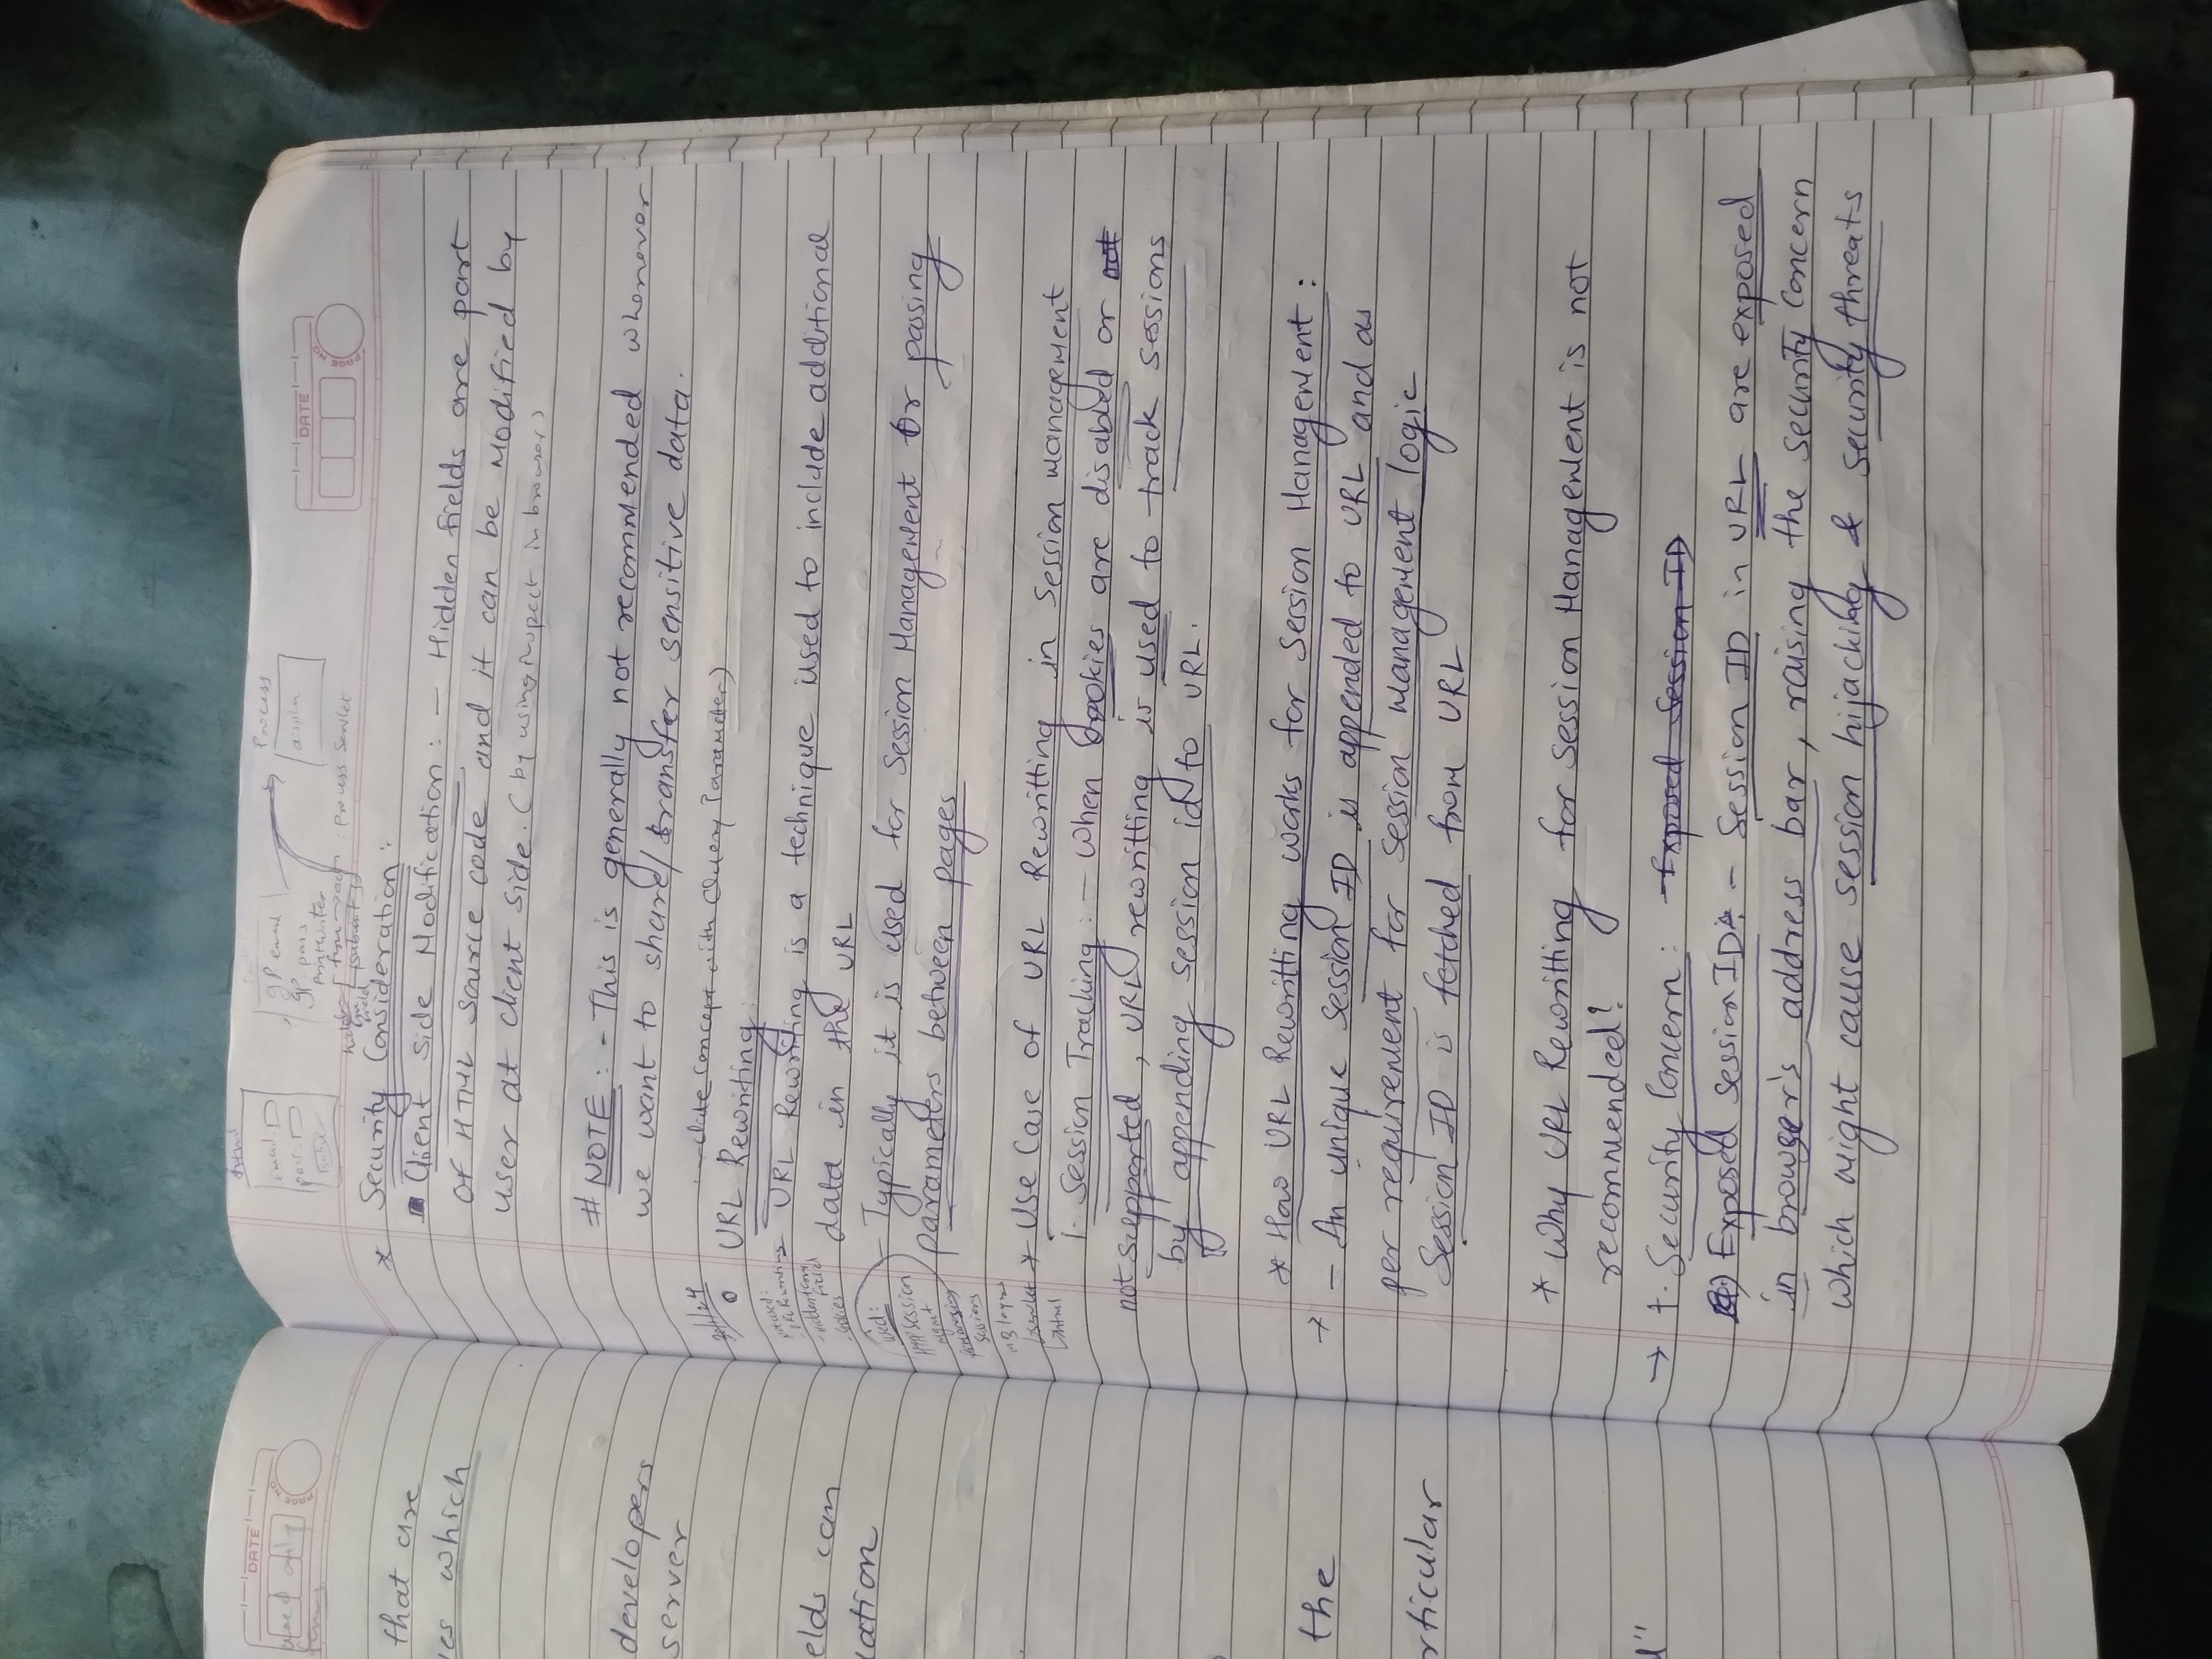 DATE
PAGE NO
used only
that are
ies which
developers
server
elds can
ation
the
rticular
html
email:
pass:
gp. email
gp. pass
printwriter
form → actn : Process Servlet
hidden [submit]
field
Process
display
DATE
PAGE NO
* Security Consideration :
Client Side Modification : - Hidden fields are part
of HTML source code and it can be Modified by
user at client side. (by using inspect in browser)
# NOTE : - This is generally not recommended whenever
we want to share/transfer sensitive data.
30/1/24
Concept with Query Parameter)
URL Rewriting
not used:
- URL Rewriting
- hidden form
field
- cookies
- URL Rewriting is a technique used to include additional
data in the URL
used:
HTTP Session
mgmt
for managing
sessions
in 3 layers
↳ servlet
↳ html
- Typically it is used for Session Management or passing
parameters between pages
* Use Case of URL Rewritting in Session management
1. Session Tracking : - When cookies are disabled or not
not supported, URL rewritting is used to track sessions
by appending session id to URL.
* How URL Rewritting works for Session Management :
→ - An unique Session ID is appended to URL and as
per requirement for session management logic
Session ID is fetched from URL
* Why URL Rewritting for Session Management is not
recommended?
→ 1. Security Concern : Exposed Session ID
a) Exposed session ID : - Session ID in URL are exposed
in browser's address bar, raising the security Concern
which might cause session hijacking & security threats